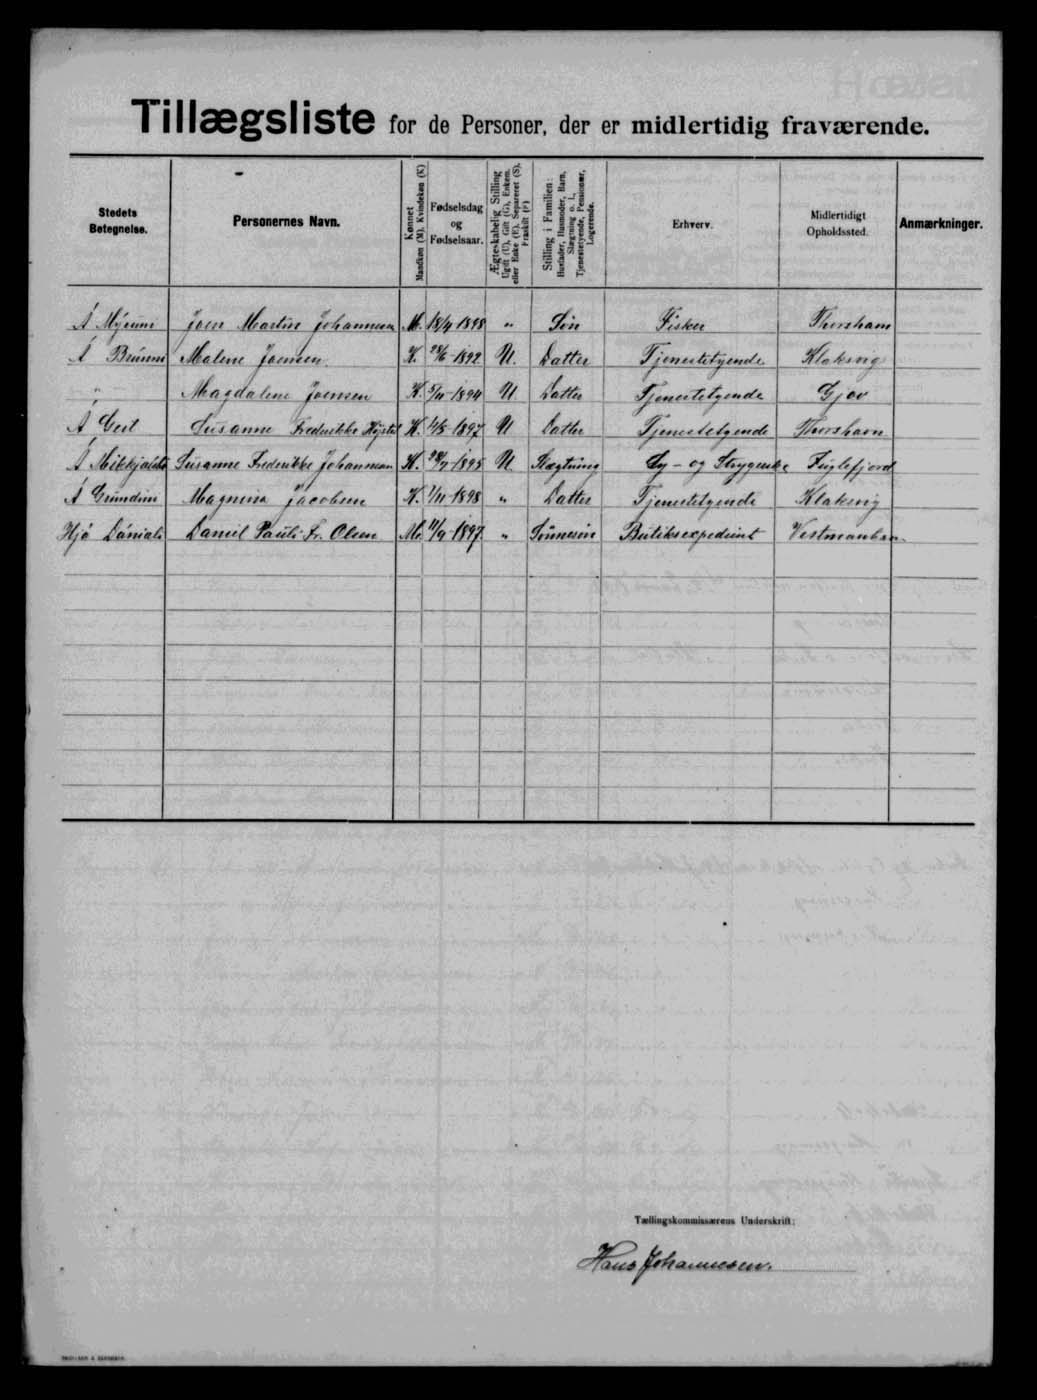 Tillægsliste for de Personer, der er midlertidig fraværende.
Stedets Betegnelse.
Personernes Navn.
Kønnet Mandkøn (M), Kvindekøn (K)
Fødselsdag og Fødselsaar.
Ægteskabelig Stilling Ugift (U), Gift (G), Enkem. eller Enke (E), Separeret (S), Fraskilt (F)
Stilling i Familien: Husfader, Husmoder, Barn, Slægtning o. l., Tjenestetyende, Pensionær, Logerende.
Erhverv.
Midlertidigt Opholdssted.
Anmærkninger.
Á Mýruni Joen Martin Johannesen M. 18/4 1898 " Søn Fisker Thorshavn
Á Brúnni Malene Joensen K. 28/6 1892 U. Datter Tjenestetyende Klaksvig
" Magdalene Joensen K. 5/11 1894 U Datter Tjenestetyende Gjov
Á Gert Susanne Frederikke K. 1897 U Datter Tjenestetyende Thorshavn
Á Susanne Frederikke Johannesen K. 1895 U Slægtning Sy- og Strygerske Fuglefjord
Á Grundini Magnina Jacobsen K. 1/11 1898 " Datter Tjenestetyende Klaksvig
Hjá Dánials Daniel Pauli Fr. Olsen M. 11/9 1897. " Sønnesøn Butiksexpedient Vestmanhavn
Tællingskommissærens Underskrift:
Hans Johannesen.